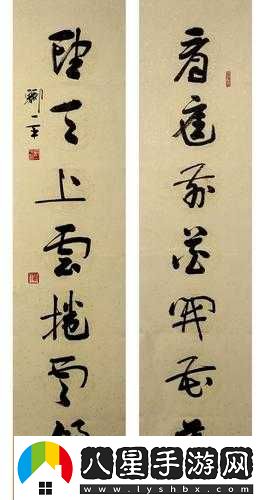 看庭前花開花
望天上雲捲雲
劉一平
八星手游网
www.lyshbx.com